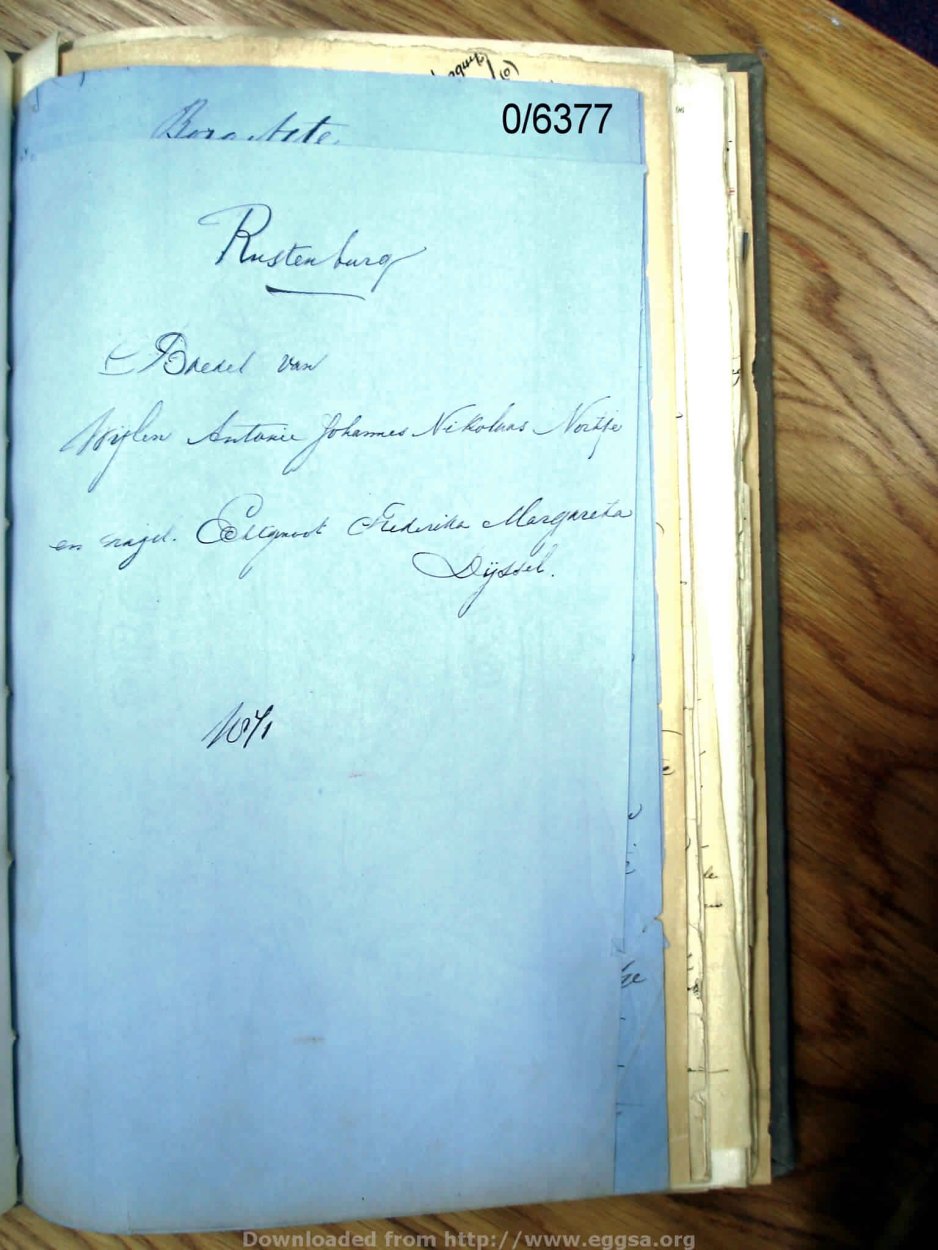 0/6377
Borg Acte.
Rustenburg
Boedel van
Wijlen Antonie Johannes Nikolaas Nortje
en nagel. Echtgenoot Frederika Margareta
Dÿssel.
Downloaded from http://www.eggsa.org